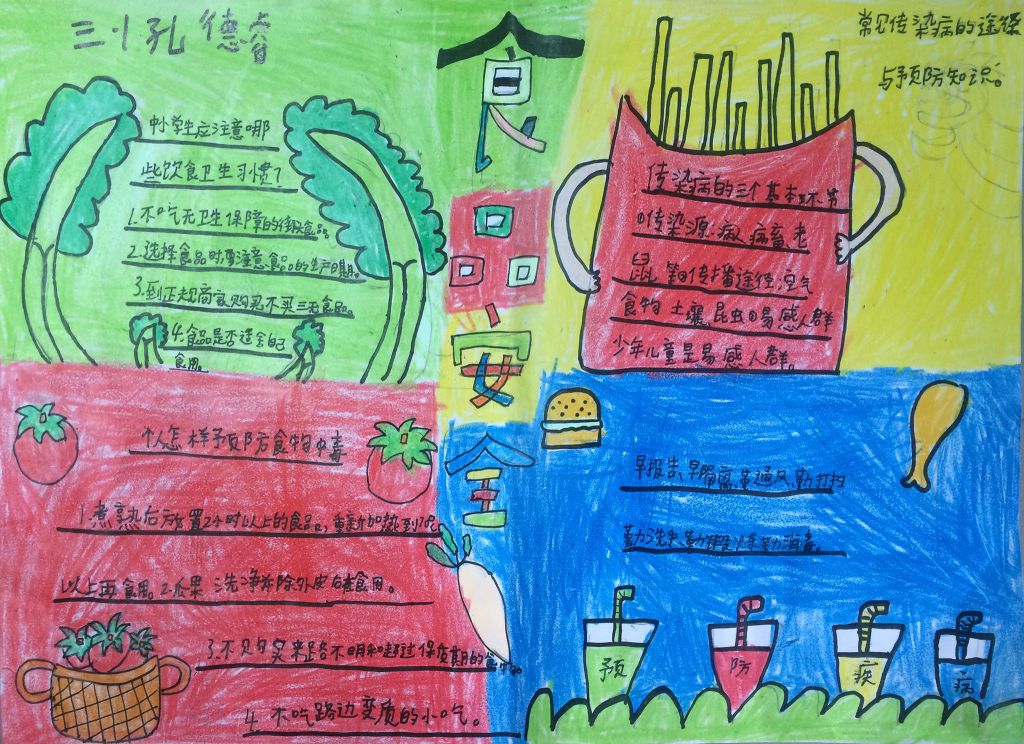 三小孔德睿
食品安全
常见传染病的途径
与预防知识。
中小学生应注意哪
些饮食卫生习惯？
1.不吃无卫生保障的街头食品。
2.选择食品时要注意食品的生产日期。
3.到正规商家购买不买三无食品。
4.食品是否适合自己
食用。
传染病的三个基本环节
传染源:病人 病畜 老
鼠 等 传播途径:空气
食物 土壤 昆虫 易感人群
少年儿童是易感人群。
个人怎样预防食物中毒
1.煮熟后放置2小时以上的食品,重新加热到70℃
以上再食用。2.瓜果洗净并除外皮后在食用。
3.不购买来路不明和超过保质期的食物
4.不吃路边变质的小吃。
早报告、早隔离、常通风、勤打扫
勤洗手、勤锻炼、勤消毒。
预
防
疾
病